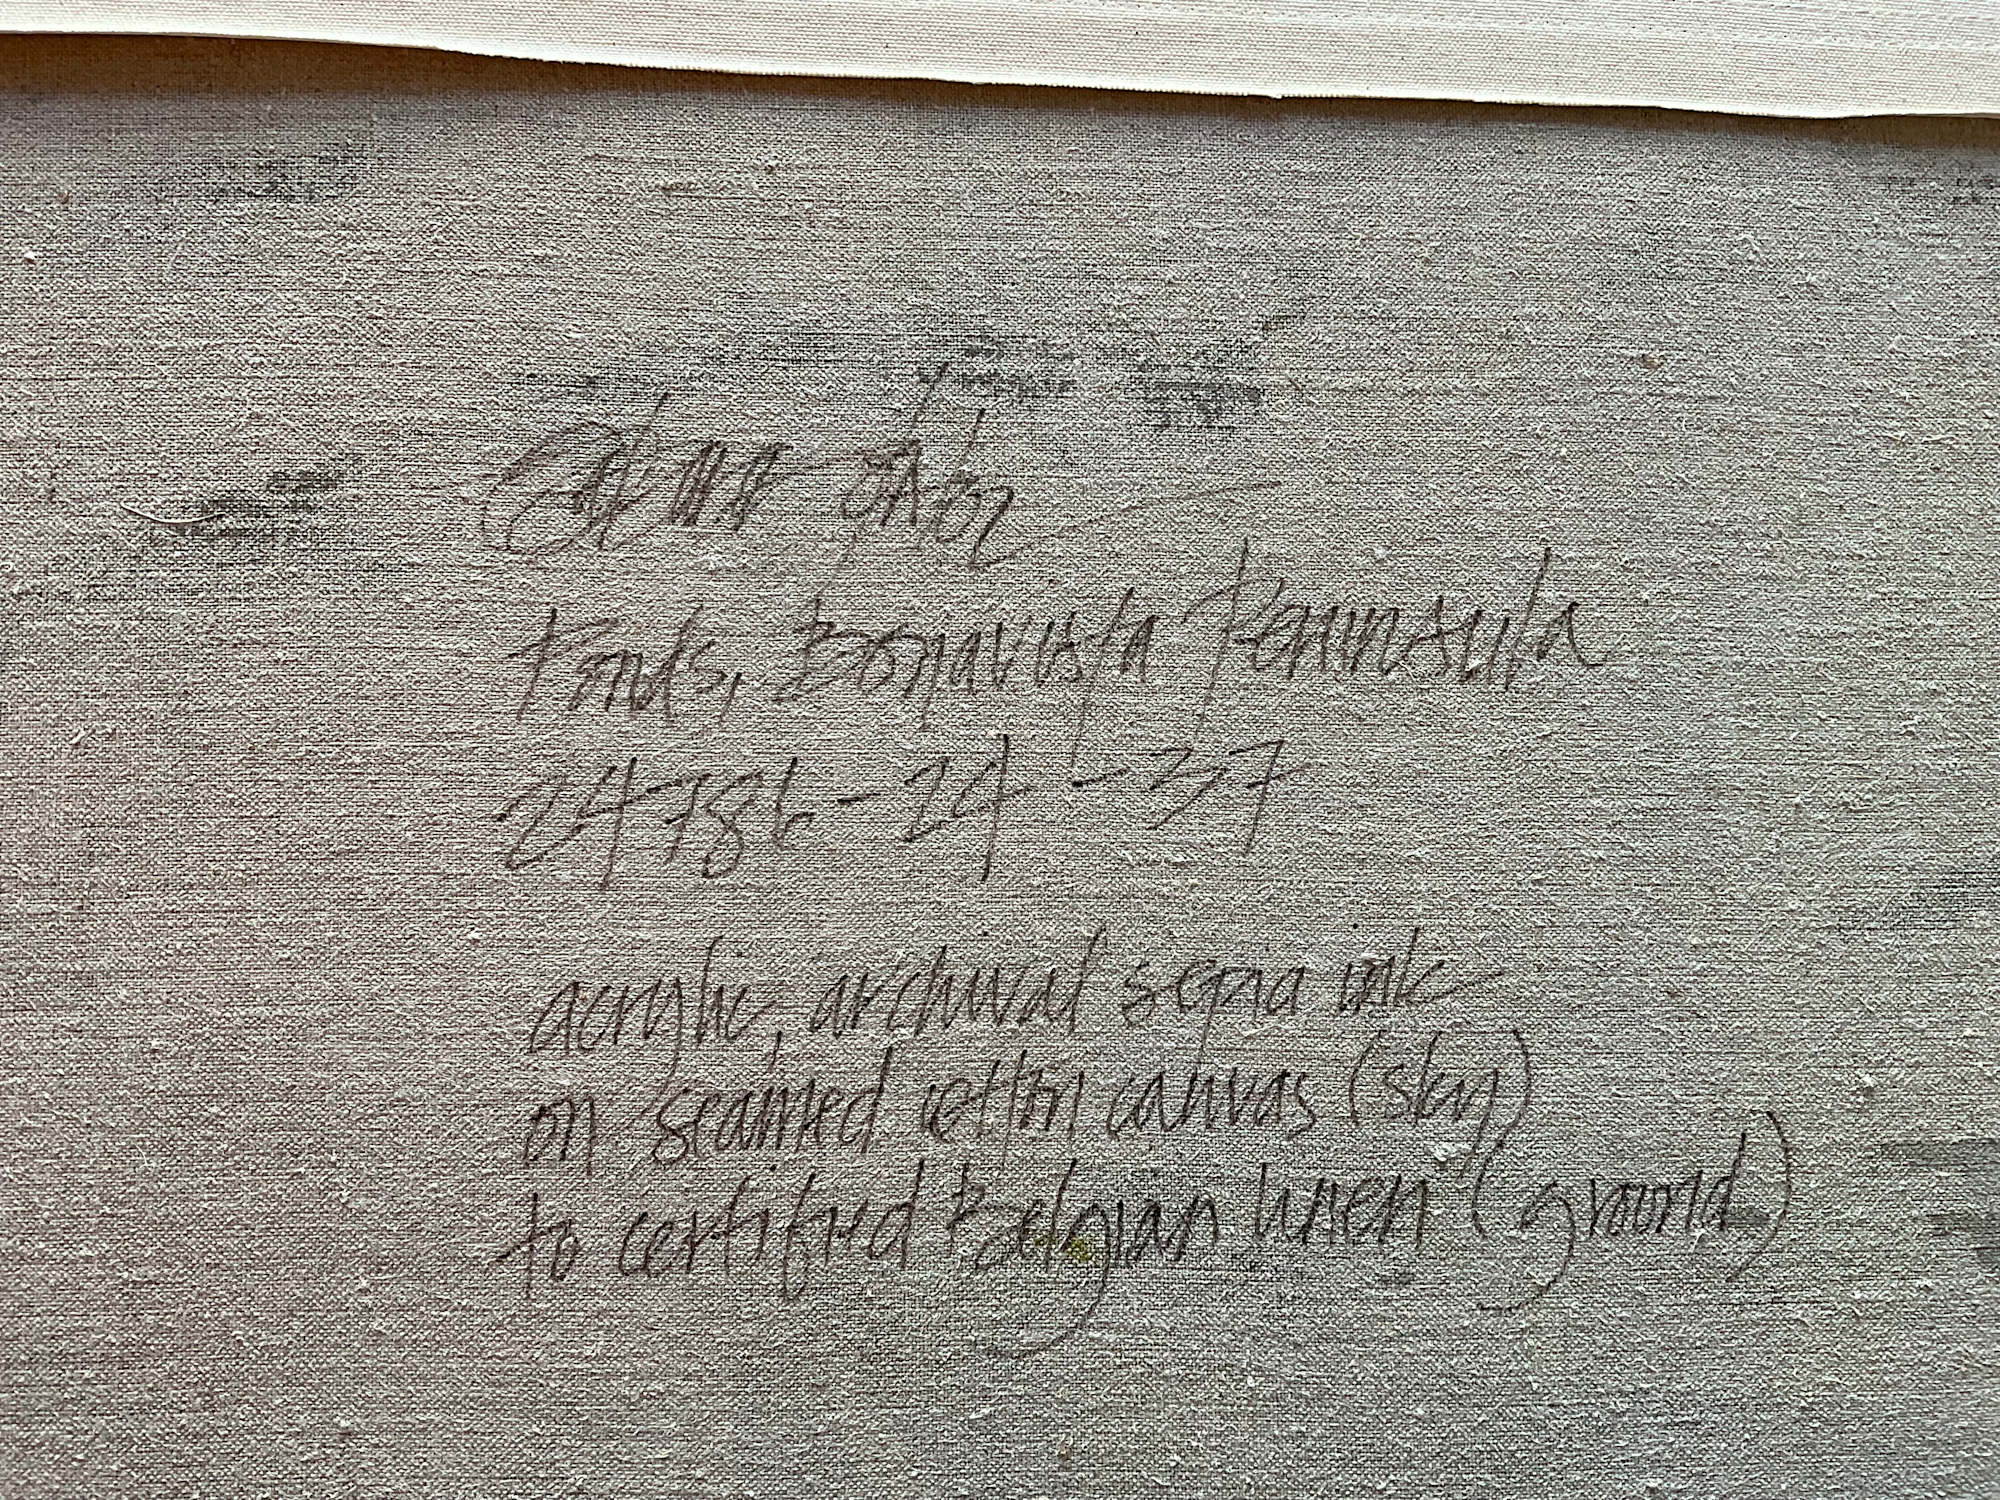 Ponds, Bonavista Peninsula
24786-24-37
acrylic, archival sepia ink
on seamed cotton canvas (sky)
to certified Belgian linen (ground)